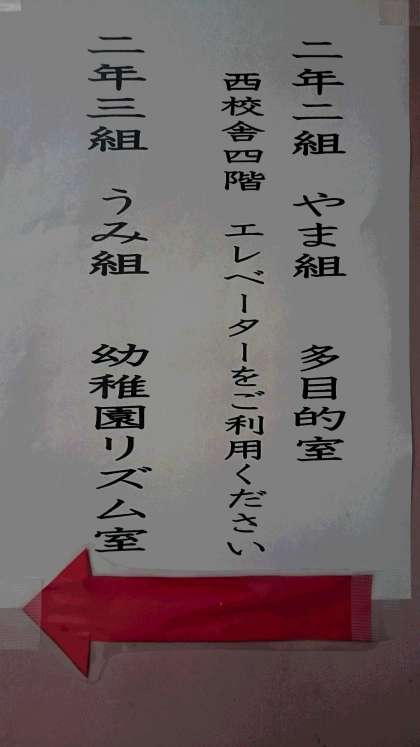 二年二組 やま組 多目的室
西校舎四階 エレベーターをご利用ください
二年三組 うみ組 幼稚園リズム室